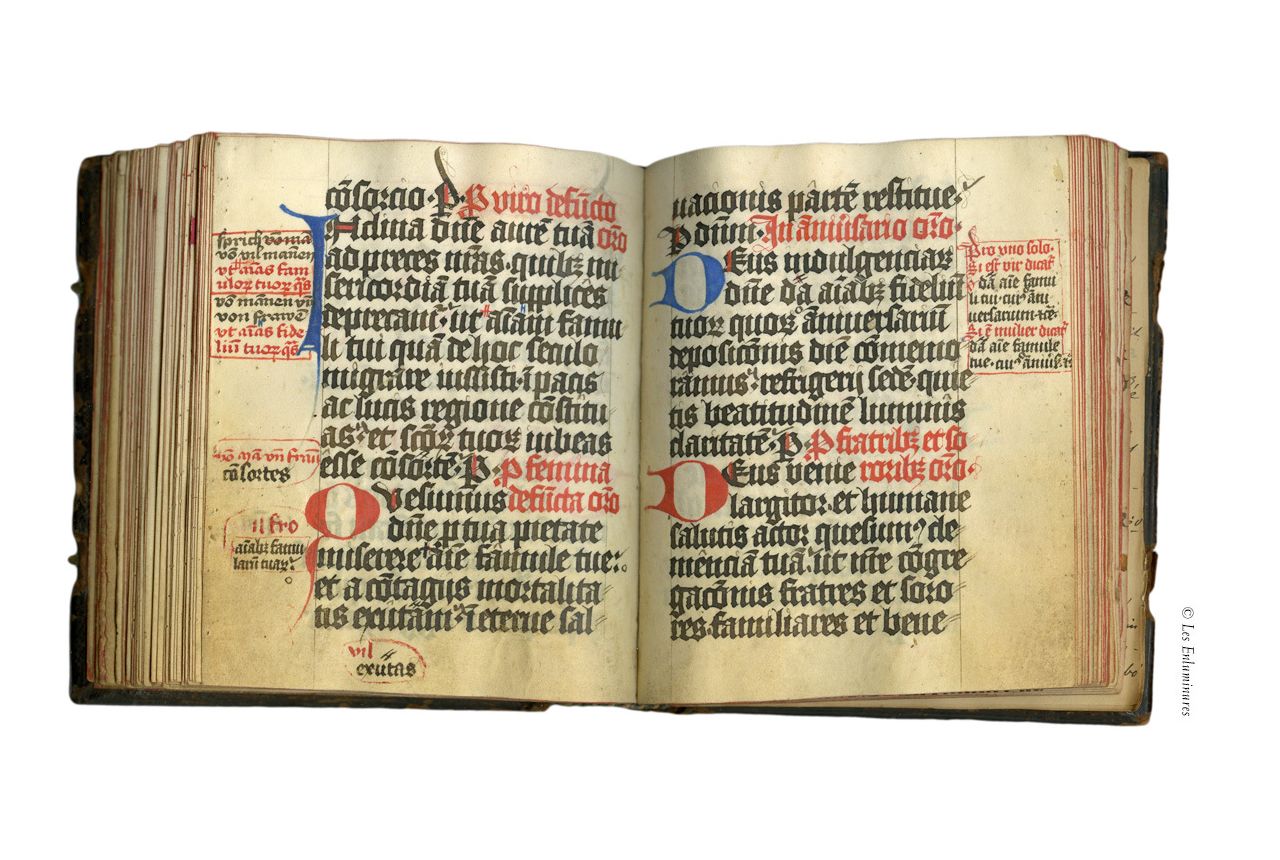 cōsorcio · P · P viro defūcto
Inclina dn̄e aurē tuā or̄o
ad preces nr̄as quibꝫ mi
sericordiā tuā supplices
deprecam̄ · ut aīam famu
li tui quā de hoc seculo
migrare iussisti · ī pacis
ac lucis regione cōstitu
as · et scōꝝ tuoꝝ iubeas
esse cōsortē · P · P femina
Qvesumus defūcta or̄o
dn̄e p tua pietate
miserere aīe famule tue :
et a cōtagijs mortalita
tis exutam ī eterne sal
sprich vō ma
vō vil mannen
vt aīas fam
uloꝝ tuoꝝ qs̄
vō mannen vn̄
von frawē
vt aīas fide
liū tuoꝝ qs̄
vō man vn̄ fraw
cōsortes
il fro
aīabꝫ famu
larū tuaꝝ
vil
exutas
uacionis partē restitue ·
P dnm̄ · In āniūsario or̄o ·
Deus indulgenciaꝝ
dn̄e da aīabꝫ fideliū
tuoꝝ quoꝝ āniuersariū
deposicōnis diē cōmemo
ramus · refrigerij sedē quie
tis beatitudinē luminis
claritatē · P · P fratribꝫ et so
Deus venie roribꝫ or̄o ·
largitor · et humane
salutis actor quesumꝰ cle
menciā tuā · ut nr̄e cōgre
gacōnis fratres et soro
res · familiares et bene
Pro vno solo ·
Si est vir dicat̄
da aīe famu
li tui · cuiꝰ āni
uersarium · ꝛc̄
Si ē mulier dicat̄
da aīe famule
tue · cuiꝰ āniūs · ꝛc̄
© Les Enluminures